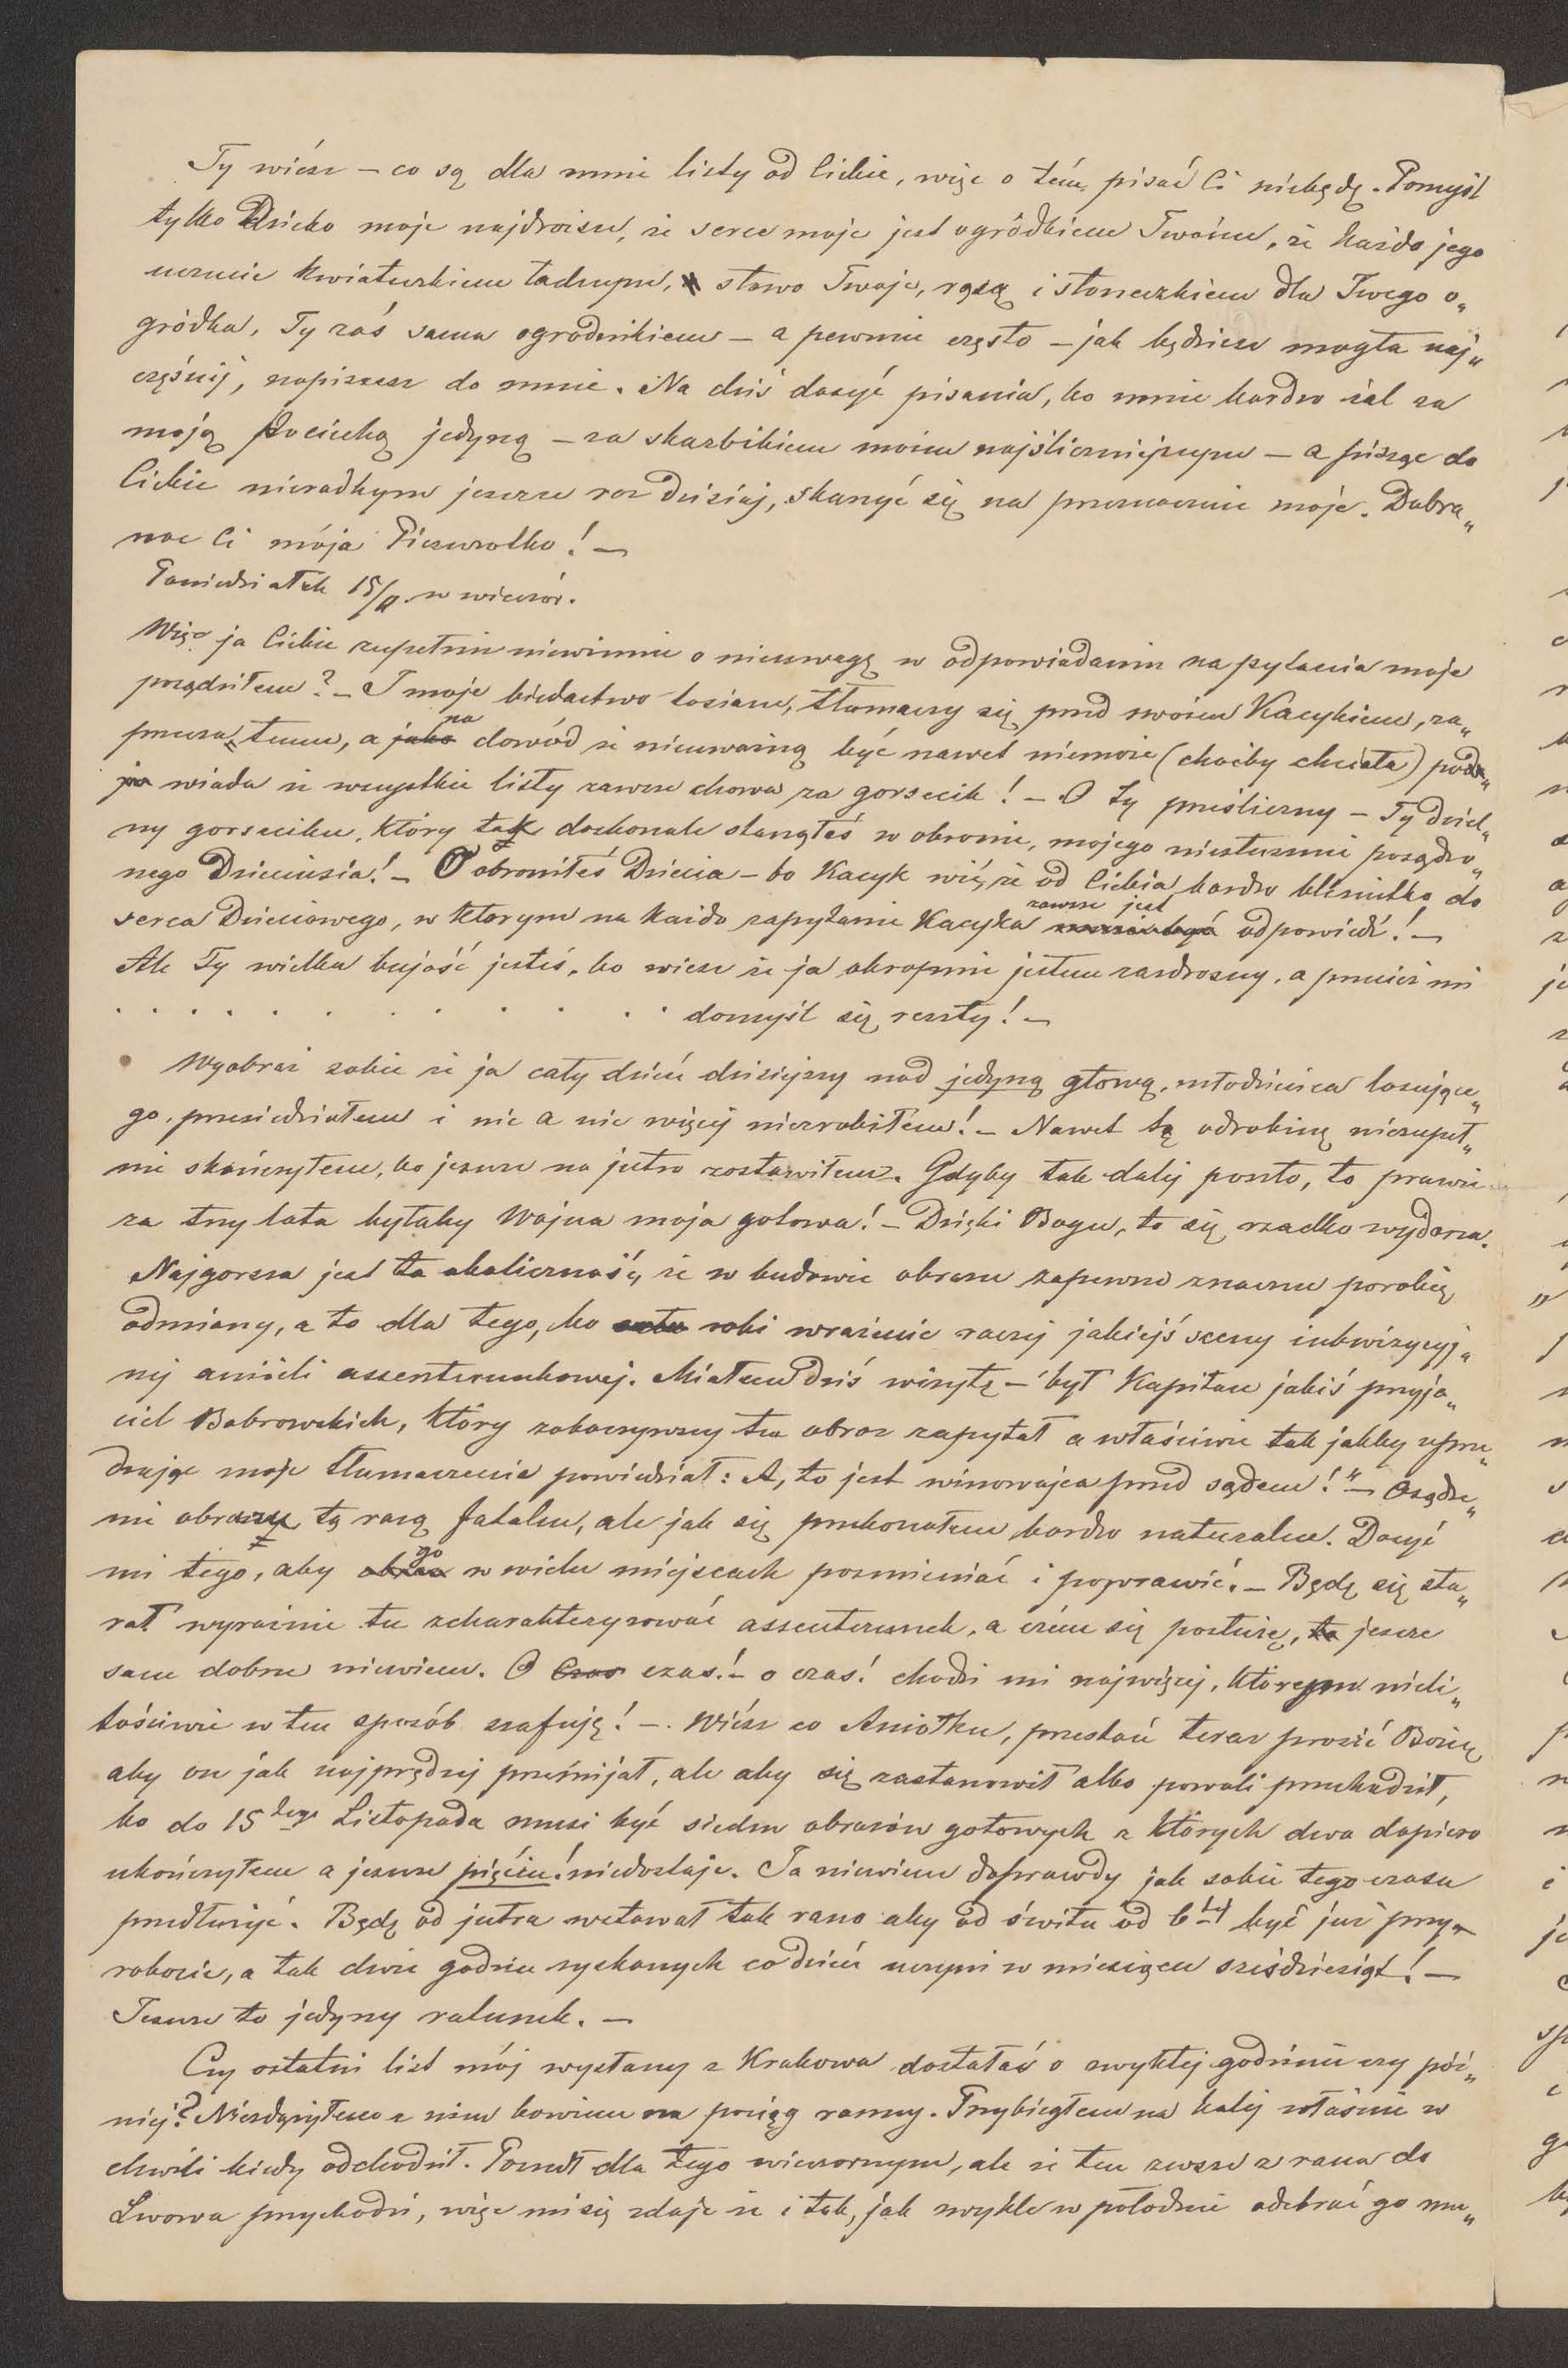 Ty wiész – co są dla mnie listy od Ciebie, więc o tém pisać Ci niebędę. Pomyśl
tylko Dziecko moje najdroższe, że serce moje jest ogródkiem Twoim, że każde jego
uczucie kwiatuszkiem tadnym, słowo Twoje, rosą i słoneczkiem dla Twego o„
gródka, Ty zaś sama ogrodnikiem – a pewnie często – jak będziesz mogła naj„
częściéj, napiszesz do mnie. Na dziś dosyć pisania, bo mnie bardzo żal za
moją pociechą jedyną – za skarbikiem moim najśliczniejszym – a pisząc do
Ciebie nieradbym jeszcze raz dzisiaj, skarżyć się na przeznaczenie moje. Dobra„
noc Ci moja Pieszczotko! –
Poniedziałek 15/ w wieczór.
Więc ja Ciebie zupełnie niewinnie o nieuwagę w odpowiadaniu na pytania moje
posądziłem? – I moje biedactwo kosiane, tłumaczy się przed swoim Kacykiem, za„
przecza temu, a na dowód że nieuważną być nawet niemoże (choćby chciała) podo„
wiada że wszystkie listy zawsze chowa za gorsecik! – O Ty prześliczny – Ty dziel„
ny gorseciku, który tak doskonale stanąłeś w obronie, mojego niesłusznie posądzo„
nego Dzieciusia! – O obroniłeś Dziecia – bo Kacyk wié, że od Ciebie bardzo bliziutko do
serca Dzieciowego, w którym na każde zapytanie Kacyka zawsze jest odpowiedź! –
Ale Ty wielka bujość jesteś, bo wiesz że ja okropnie jestem zazdrosny, a przecież mi
. . . . . . . . . . . . domyśl się reszty! –
Wyobraź sobie że ja cały dzień dzisiejszy nad jedyną głową, młodzieńca losujące„
go przesiedziałem i nic a nic więcéj niezrobiłem! – Nawet tę odrobinę niezupeł„
nie skończyłem, bo jeszcze na jutro zostawiłem. Gdyby tak daléj poszło, to prawie
za trzy lata byłaby Wojna moja gotowa! – Dzięki Bogu, to się rzadko wydarza.
Najgorsza jest ta okoliczność, że w budowie obrazu zapewne znaczne porobię
odmiany, a to dla tego, bo robi wrażenie raczéj jakiéjś sceny inkwizycyj„
néj aniżeli assenterunkowej. Miałem dziś wizytę – był Kapitan jakiś przyja„
ciel Bobrowskich, który zobaczywszy ten obraz zapytał a właściwie tak jakby uprze„
dzając moje tłumaczenia powiedział: A, to jest winowajca przed sądem!" – Osądze„
nie obrazu tą razą fatalne, ale jak się przekonałem bardzo naturalne. Dosyć
mi tego, aby go w wielu miejscach pozmieniać i poprawić. – Będę się sta„
rał wyraźnie tu scharakteryzować assenterunek, a czém się posłużę, jeszcze
sam dobrze niewiem. O czas! – o czas! chodzi mi najwięcéj, którym nieli„
tościwie w ten sposób szafuję! –. Wiész co Aniołku, przestań teraz prosić Bozię
aby on jak najprędzéj przemijał, ale aby się zastanowił albo powoli przechodził,
bo do 15tego Listopada musi być siedm obrazów gotowych z których dwa dopiero
ukończyłem a jeszcze pięciu! niedostaje. Ja niewiem doprawdy jak sobie tego czasu
przedłużyć. Będę od jutra wstawał tak rano aby od świtu od 6téj być już przy
robocie, a tak dwie godzin zyskanych codzień uczyni w miesiącu sześdziesiąt! –
Jeszcze to jedyny ratunek. –
Czy ostatni list mój wysłany z Krakowa dostałaś o zwykłéj godzinie czy póź„
niéj? Niezdążyłem z nim bowiem na pociąg ranny. Przybiegłem na koléj właśnie w
chwili kiedy odchodził. Poszedł dla tego wieczornym, ale że ten zawsze z rana do
Lwowa przychodzi, więc mi się zdaje że i tak, jak zwykle w południe odebrać go mu„